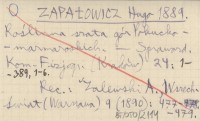 O ZAPAŁOWICZ Hugo 1889.
Roślinna szata gór Pokucko-
marmaroskich. Sprawozd.
Kom. Fizjogr. (Kraków) 24: 1-
-389, 1-6.
Rec.: Zalewski A. Wszech-
świat (Warszawa) 9 (1890): 477-
-479.